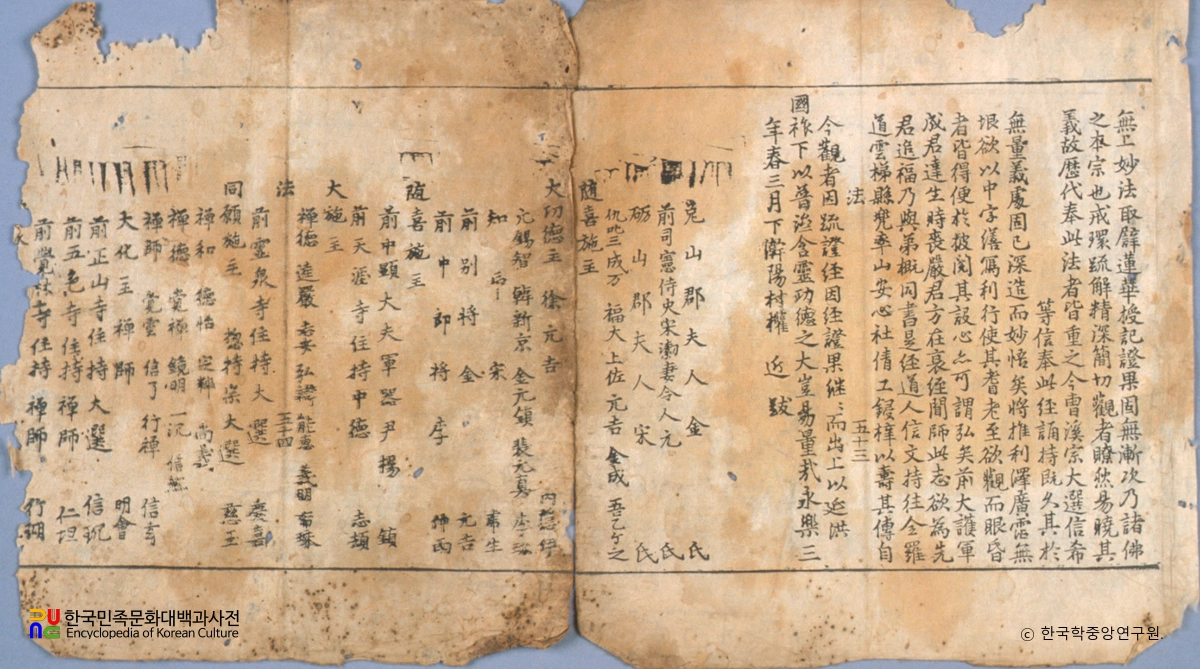 無上妙法取辟蓮華授記證果固無漸次乃諸佛
之本宗也戒環疏解精深簡切觀者瞭然易曉其
義故歷代奉此法者皆重之今曹溪宗大選信希
等信奉此經誦持旣久其於
無量義處固已深造而妙悟矣將推利澤廣霑無
垠欲以中字繕寫利行使其耆老至欲觀而眼昏
者皆得便於披閱其設心亦可謂弘矣前大護軍
成君達生時喪嚴君方在哀絰聞師此志欲爲先
君追福乃與第槪同書是經道人信文持往全羅
道雲梯縣兜率山安心社倩工鋟梓以壽其傳自
法
五十三
今觀者因疏證經因經證果継〻而出上以返洪
國祚下以普洽含靈功德之大豈易量哉永樂三
年春三月下澣陽村權 近 跋
兎山郡夫人金 氏
前司憲侍史宋渤妻令人元 氏
礪山郡夫人宋 氏
隨喜施主
仇叱三 成万 福大 上佐 元吉 金成 吾乙亇之
大功德主 徐元吉
元錫智 韓新京 金元鎮 裴元真
知 宋
前別將 金 元吉
前中郎將 李
隨喜施主
前中顯大夫軍器 尹 揚
前天涯寺住持中德 志頙
大施主
禪德 達嚴 志安 弘 能惠 義明 布琛
法
五十四
前靈泉寺住持大選 慶喜
同願施主 揔持 大選 慈玉
禪和 德怡 尙義
禪德 覺禪 鏡明 一沉
禪師 覺雲 信了 行禪 信玄
大化主禪師 明會
前正山寺住持大選 信沉
前五色寺住持禪師 仁坦
前覺林寺住持禪師 行瑚
한국민족문화대백과사전
Encyclopedia of Korean Culture
© 한국학중앙연구원.